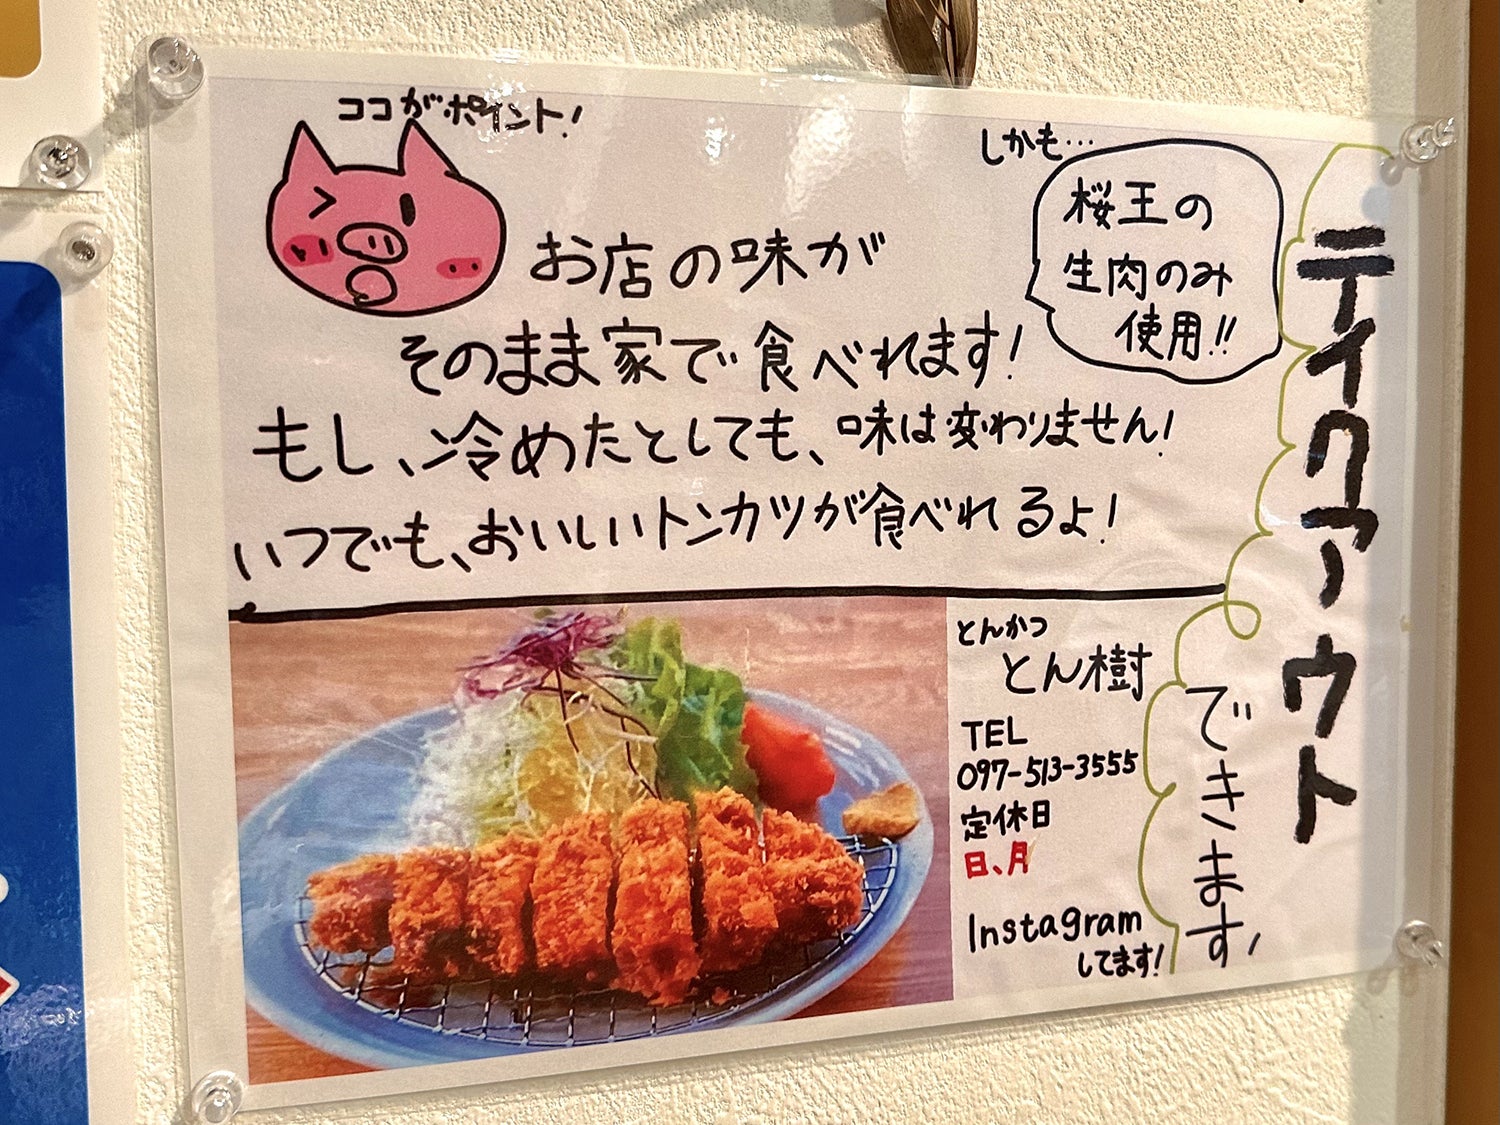 テイクアウト
できます
しかも…
桜王の
生肉のみ
使用!!
ココがポイント!
お店の味が
そのまま家で食べれます!
もし、冷めたとしても、味は変わりません!
いつでも、おいしいトンカツが食べれるよ!
とんかつ
とん樹
TEL
097-513-3555
定休日
日、月
Instagram
してます!